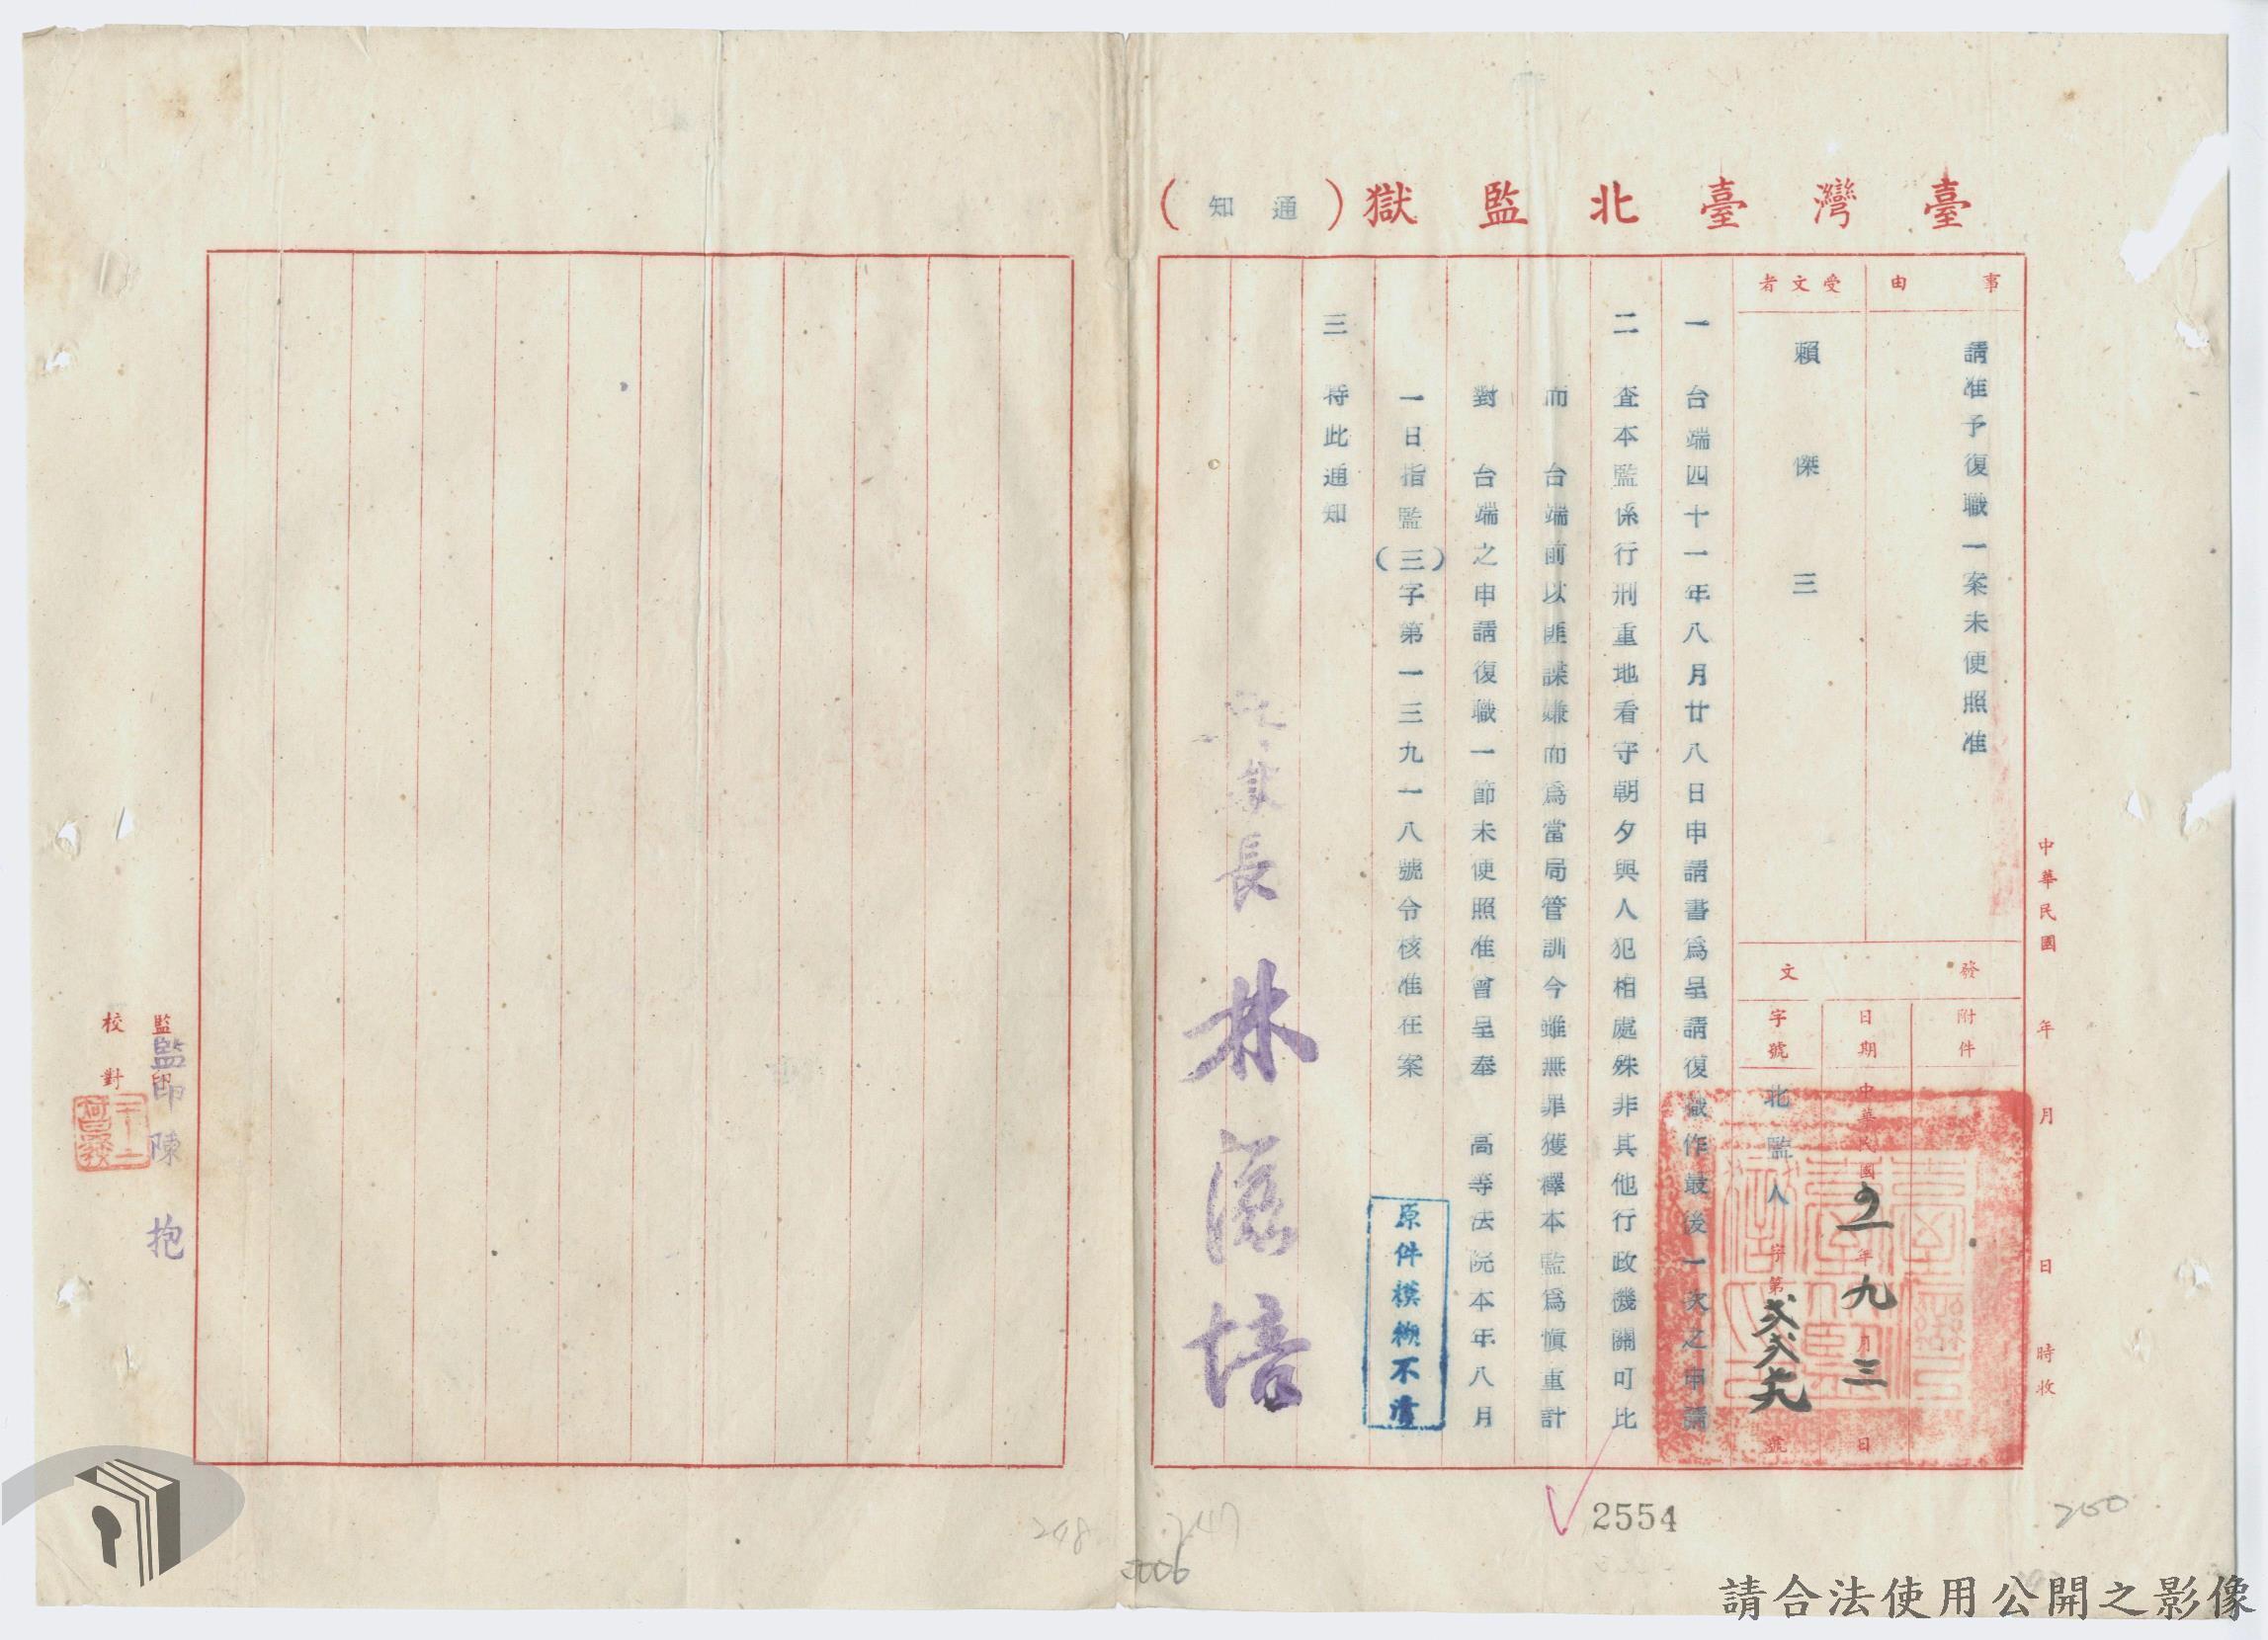 臺灣臺北監獄（通知）
事由
請准予復職一案未便照准
受文者
賴傑三
發文
附件
日期
中華民國四一年九月三日
字號
北監人字第弍弍六九號
中華民國 年 月 日 時收
一 台端四十一年八月廿八日申請書為呈請復職作最後一次之申請
二 查本監係行刑重地看守朝夕與人犯相處殊非其他行政機關可比
而 台端前以匪諜嫌而為當局管訓今雖無罪獲釋本監為慎重計
對 台端之申請復職一節未便照准曾呈奉 高等法院本年八月
一日指監（三）字第一三九一八號令核准在案
三 特此通知
原件模糊不清
長 林
培
監印
監印 陳 抱
校對
2554
247
248
250
請合法使用公開之影像